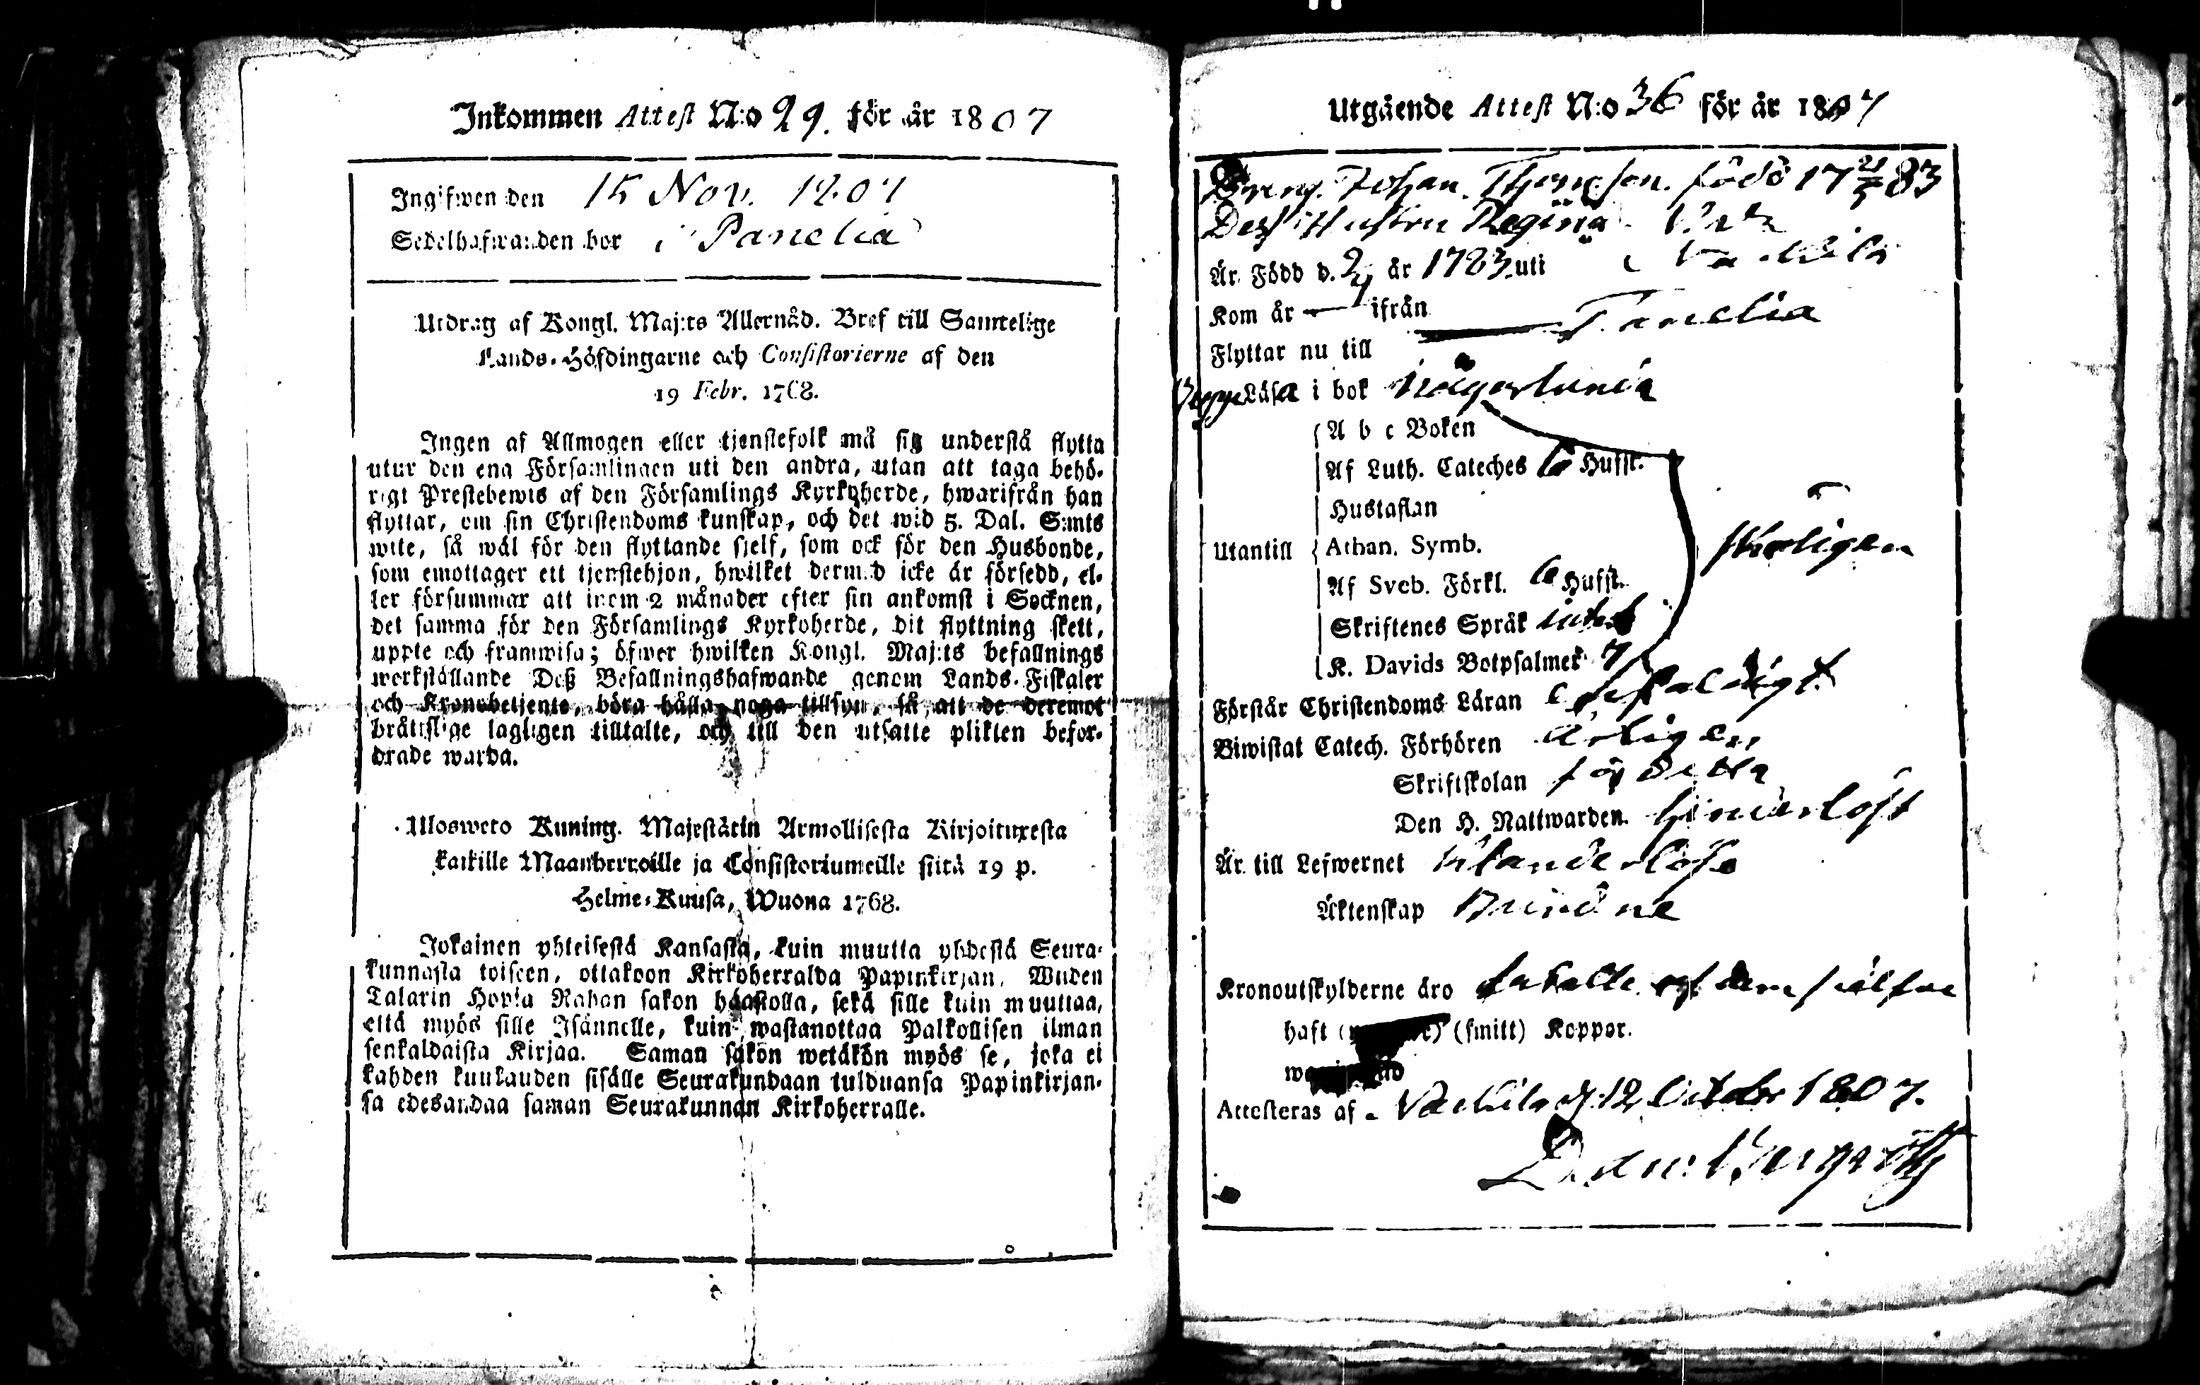 Inkommen Attest N:o 29. för år 1807
Ingifwen den 15 Nov. 1807
Sedelhafwanden bor i Panelia
Utdrag af Kongl. Maj:ts Allernåd. Bref till Samtelige
Lands-Höfdingarne och Consistorierne af den
19 Febr. 1768.
Ingen af Allmogen eller tjenstefolk må sig understå flytta
utur den ena Församlingen uti den andra, utan att taga behö-
rigt Prestebewis af den Församlings Kyrkoherde, hwarifrån han
flyttar, om sin Christendoms kunskap, och det wid 5. Dal. S:mts
wite, så wäl för den flyttande sjelf, som ock för den Husbonde,
som emottager ett tjenstehjon, hwilket dermed icke är försedd, el-
ler försummar att inom 2 månader efter sin ankomst i Socknen,
det samma för den Församlings Kyrkoherde, dit flyttning skett,
uppte och framwisa; öfwer hwilken Kongl. Maj:ts befallnings
werkställande Deß Befallningshafwande genom Lands-Fiskaler
och Kronobetjente, böra hålla noga tillsyn, så att de deremot
bråttslige lagligen tilltalte, och till den utsatte plikten befor-
drade warda.
Ulosweto Kuning. Majestätin Armollisesta Kirjoituxesta
kaikille Maanherroille ja Consistoriumeille siitä 19 p.
Helme-Kuusa, Wuona 1768.
Jokainen yhteisestä Kansasta, kuin muutta yhdestä Seura-
kunnasta toiseen, ottakoon Kirkoherralda Papinkirjan, Wiiden
Talarin Hopia Rahan sakon haastolla, sekä sille kuin muuttaa,
että myös sille Isännelle, kuin wastanottaa Palkollisen ilman
senkaldaista Kirjaa. Saman sakon wetäkön myös se, joka ei
kahden kuukauden sisälle Seurakundaan tulduansa Papinkirjan-
sa edesandaa saman Seurakunnan Kirkoherralle.
Utgående Attest N:o 36 för år 1807
Dreng. Johan Thomsson. född 17 21/5 83
Dess Hustru Regina
Är Född d. år 1783 uti
Kom år — ifrån
Flyttar nu till Panelia
Begge Läsa i bok någorlunda
A b c Boken
Af Luth. Cateches 6 Hufst.
Hustaflan
Utantill Athan. Symb. skäligen
Af Sveb. Förkl. 6 Hufst.
Skriftenes Språk intet
K. Davids Botpsalmer 7
Förstår Christendoms Läran enfaldigt
Biwistat Catech. Förhören årligen
Skriftskolan för detta
Den H. Nattwarden hinderlöst
Är till Lefwernet klanderlöse
Äktenskap Bundne
Kronoutskylderne äro betalte af dem sjelfve
haft (smitt) Koppor.
Attesteras af Nackila d. 12 October 1807.